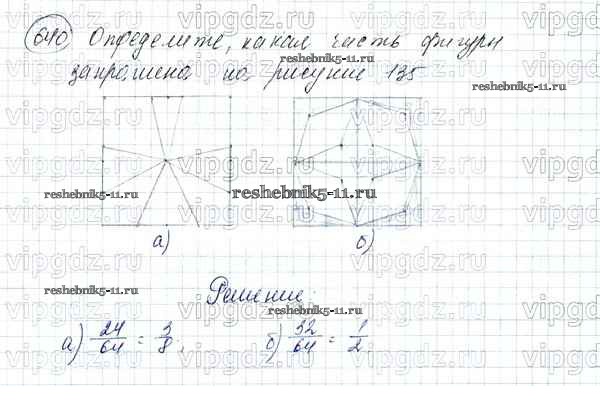 640 Определите, какая часть фигуры
закрашена на рисунке 135
reshebnik5-11.ru
reshebnik5-11.ru
reshebnik5-11.ru
reshebnik5-11.ru
а) б)
Решение:
reshebnik5-11.ru
reshebnik5-11.ru
а) 24/64 = 3/8, б) 32/64 = 1/2.
vipgdz.ru